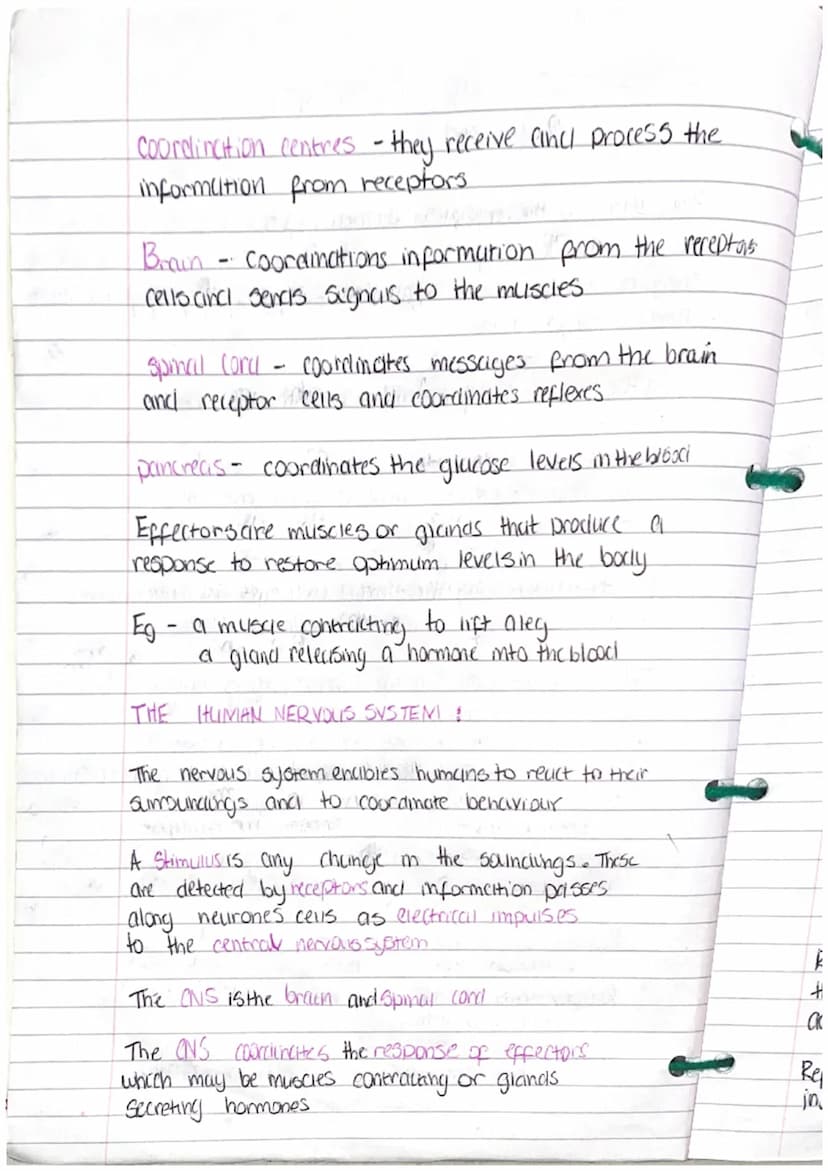 Coordination centres - they receive and process the
information from receptors
Brain - coordinations information from the receptors
cells and sends signals to the muscles
spinal cord - coordinates messages from the brain
and receptor cells and coordinates reflexes
pancreas - coordinates the glucose levels in the blood
Effectors are muscles or glands that produce a
response to restore optimum levels in the body
Eg - a muscle contracting to lift a leg
a gland releasing a hormone into the blood
THE HUMAN NERVOUS SYSTEM :
The nervous system enables humans to react to their
surroundings and to coordinate behaviour
A stimulus is any change in the . These
are detected by receptors and information passes
along neurones cells as electrical impulses
to the central nervous system
The CNS is the brain and spinal cord
The CNS coordinates the response of effectors
which may be muscles contracting or glands
secreting hormones
Rep
in